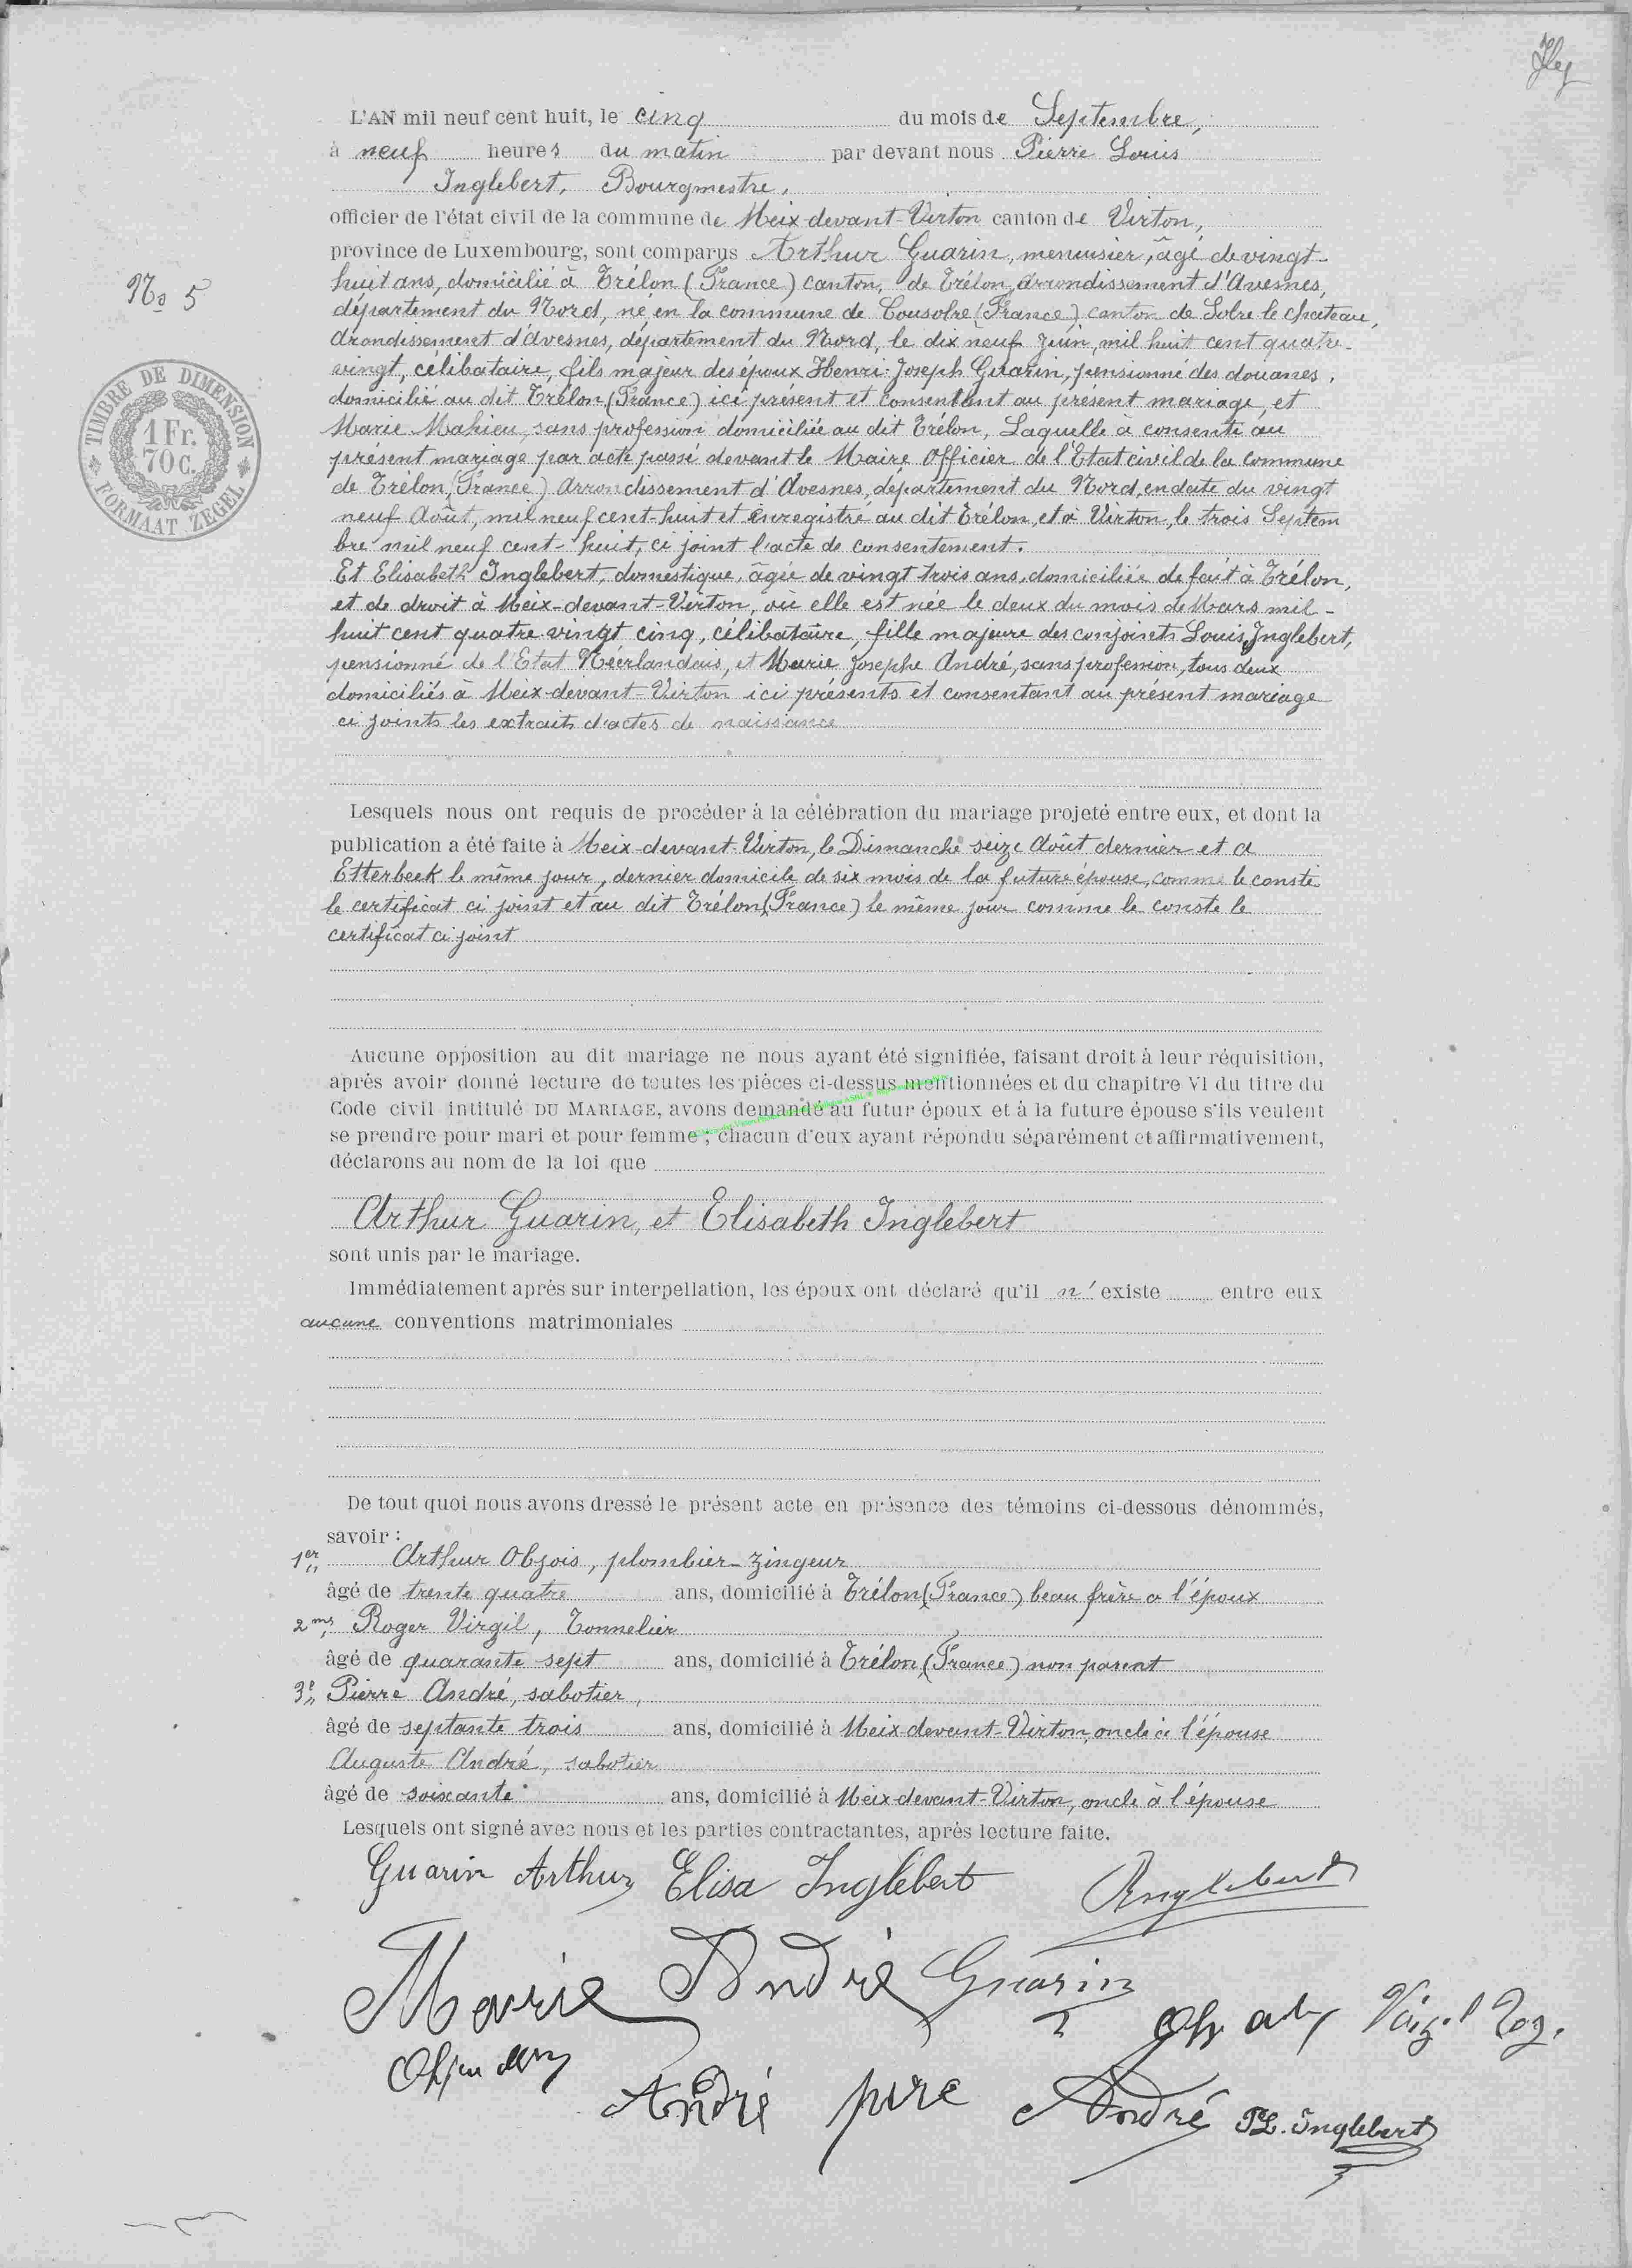 L'AN mil neuf cent huit, le cinq du mois de Septembre,
à neuf heures du matin par devant nous Pierre Louis
Inglebert, Bourgmestre,
officier de l'état civil de la commune de Meix-devant-Virton canton de Virton,
province de Luxembourg, sont comparus Arthur Guarin, menuisier, âgé de vingt-
huit ans, domicilié à Trélon (France) canton, de Trélon, arrondissement d'Avesnes,
No 5
département du Nord, né en la commune de Cousolre (France) canton de Solre le Chateau,
arondissement d'Avesnes, département du Nord, le dix neuf Juin, mil huit cent quatre-
vingt, célibataire, fils majeur des époux Henri-Joseph Guarin, pensionné des douanes,
domicilié au dit Trélon (France) ici présent et consentant au présent mariage, et
Marie Mahieu, sans profession domiciliée au dit Trélon, Laquelle à consenti au
présent mariage par acte passé devant le Maire Officier de l'Etat civil de la commune
de Trélon, (France) Arrondissement d'Avesnes, département du Nord, en date du vingt
neuf Août, mil neuf cent-huit et enregistré au dit Trélon, et à Virton, le trois Septem
bre mil neuf cent-huit, ci joint l'acte de consentement.
TIMBRE DE DIMENSION
1 Fr.
70 C.
FORMAAT ZEGEL
Et Elisabeth Inglebert, domestique, âgée de vingt trois ans, domiciliée de fait à Trélon,
et de droit à Meix-devant-Virton, où elle est née le deux du mois de Mars mil-
huit cent quatre-vingt cinq, célibataire, fille majeure des conjoints Louis Inglebert,
pensionné de l'Etat Néerlandais, et Marie Josephe André, sans profession, tous deux
domiciliés à Meix-devant-Virton ici présents et consentant au présent mariage
ci joints les extraits d'actes de naissance
Lesquels nous ont requis de procéder à la célébration du mariage projeté entre eux, et dont la
publication a été faite à Meix-devant-Virton, le Dimanche seize Août dernier et a
Etterbeek le même jour, dernier domicile de six mois de la future épouse, comme le conste
le certificat ci joint et au dit Trélon (France) le même jour comme le conste le
certificat ci joint
Aucune opposition au dit mariage ne nous ayant été signifiée, faisant droit à leur réquisition,
après avoir donné lecture de toutes les pièces ci-dessus mentionnées et du chapitre VI du titre du
Code civil intitulé DU MARIAGE, avons demandé au futur époux et à la future épouse s'ils veulent
se prendre pour mari et pour femme ; chacun d'eux ayant répondu séparément et affirmativement,
déclarons au nom de la loi que
Arthur Guarin, et Elisabeth Inglebert
sont unis par le mariage.
Immédiatement après sur interpellation, les époux ont déclaré qu'il n'existe entre eux
aucune conventions matrimoniales
De tout quoi nous avons dressé le présent acte en présence des témoins ci-dessous dénommés,
savoir :
1er Arthur Objois, plombier-zingeur
âgé de trente quatre ans, domicilié à Trélon (France) beau frère a l'époux
2me Roger Virgil, Tonnelier
âgé de quarante sept ans, domicilié à Trélon (France) non parent
3e Pierre André, sabotier,
âgé de septante trois ans, domicilié à Meix-devant-Virton, oncle à l'épouse
Auguste André, sabotier
âgé de soixante ans, domicilié à Meix-devant-Virton, oncle à l'épouse
Lesquels ont signé avec nous et les parties contractantes, après lecture faite.
Guarin Arthur Elisa Inglebert Inglebert
Marie André Guarin
Virgil Rog.
André pire André PL. Inglebert